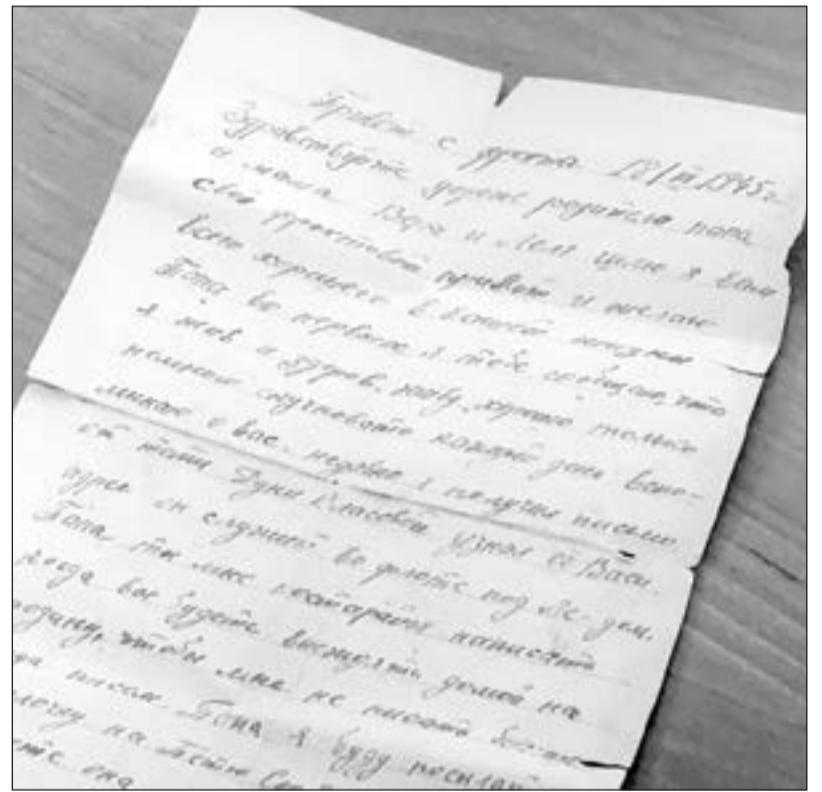 Привет с фронта 18/II 1945г.
Здравствуйте дорог родители папа
и мама Вера и Леля шлю я Вам
свой фронтовой привет и желаю
всего хорошего в вашей жизни
Папа во первых я тебе сообщаю, что
я жив и здоров, живу хорошо только
немного скучновато каждый день вспо-
минаю о вас. недавно я получил письмо
от тети Дуни Власовой узнал от Васи.
адрес он служит во флоте под
Папа ты мне постарайся написать
когда вы будете выезжать домой на
родину, чтобы мне не писать больше
писем Папа я буду посылать
на
она